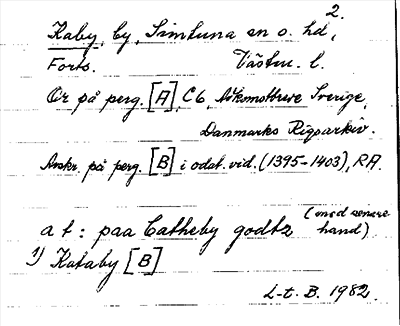 2.
Kaby, by, Simtuna sn o. hd,
Forts. Västm. l.
Or på perg. [A], C6, Adkomstbreve Sverige,
Danmarks Rigsarkiv.
Avskr. på perg. [B] i odat. vid. (1395-1403), RA.
a t : paa Catheby godtz (med senare hand)
1) Kataby [B]
L-t. B. 1982.